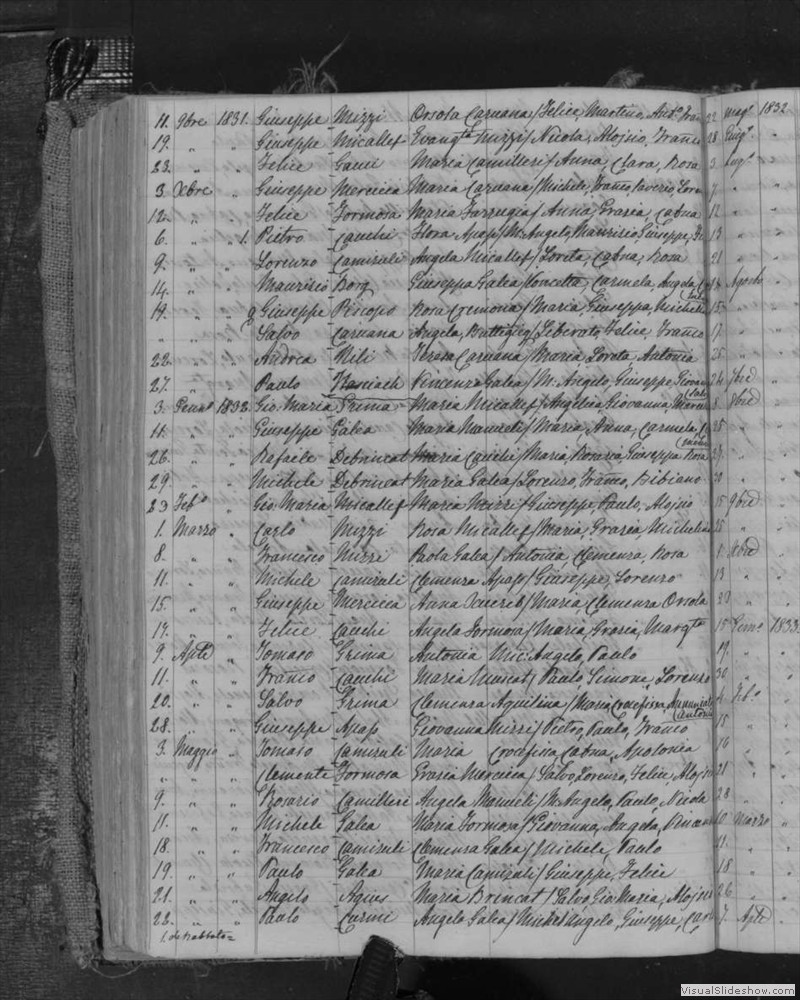 11. 9bre 1831. Giuseppe Mizzi Orsola Caruana / Felice, Martino, And.º Fran 22 Mag.º 1832
19. " " Giuseppe Micallef Evang.ta Mizzi / Nicola, Aloisio, Franco 28 Giug.º "
23. " " Felice Gauci Maria Camilleri / Anna, Clara, Rosa 3 Lug.º "
3. Xbre " Giuseppe Mercieca Maria Caruana / Michele, Franco Saverio, Lore 7 " "
12. " " Felice Formosa Maria Farrugia / Anna, Grazia, Cabna 12 " "
6. " " 1. Pietro Cauchi Flora Apap / M. Angelo, Maurizio, Giuseppe, 13 " "
9. " " Lorenzo Camizuli Angela Micallef / Loreta, Cabna, Rosa 21 " "
14. " " Maurizio Borg Giuseppa Galea / Concetta, Carmela, Angela 14 Agosto "
19. " " Giuseppe Piscopo Rosa Cremona / Maria, Giuseppa, Michele 15 " "
" " " Salvo Caruana Angela Buttigieg / Liberato, Felice, Franco 17 " "
22. " " Andrea Mili Teresa Caruana / Maria, Loreta, Antonia 25 " "
27. " " Paulo Vincenza Galea / M. Angelo, Giuseppe, Giovan 24 "
3. Genn.º 1832. Gio Maria Grima Maria Micallef / Angelica, Giovanna, 8 8bre "
11. " " Giuseppe Galea Maria Manueli / Maria, Anna, Carmela, 25 " "
26. " " Rafaele Debrincat Maria Cauchi / Maria, Rosaria, Giuseppa Rosa 27 " "
29. " " Michele Debrincat Maria Galea / Lorenzo, Franco, Bibiano 30 " "
23 Feb.º " Gio Maria Micallef Maria Mizzi / Giuseppe, Paulo, Aloisio 15 9bre "
1. Marzo " Carlo Mizzi Rosa Micallef / Maria, Grazia, Michelina 25 " "
8. " " Francesco Mizzi Paola Galea / Antonia, Clemenza, Rosa 1 Xbre "
11. " " Michele Camizuli Clemenza Apap / Giuseppe, Lorenzo 13 " "
15. " " Giuseppe Mercieca Anna / Maria Clemenza Orsola 29 " "
17. " " Felice Cauchi Angela Formosa / Maria, Grazia, Marg.ta 15 Genn.º 1833.
9. Aple " Tomaso Grima Antonia Mic: Angelo, Paulo 19. " "
11. " " Franco Cauchi Maria Muscat / Paulo Simone, Lorenzo 30. " "
20. " " Salvo Grima Clemenza Aquilina / Maria Crocefissa, Annunziata Antonia 4 Feb.º "
28. " " Giuseppe Apap Giovanna Mizzi / Pietro, Paulo, Franco 15 " "
3. Maggio " Tomaso Camizuli Maria Crocefissa, Cabna, Apolonia 16 " "
" " " Clemente Formosa Grazia Mercieca / Salvo, Lorenzo, Felice, Aloisio 21 " "
9. " " Rosario Camilleri Angela Manueli / M. Angelo, Paulo, Nicola 28 " "
11. " " Michele Galea Maria Formosa / Giovanna, Angela, Vincenza 10. Marzo "
18. " " Francesco Camizuli Clemenza Galea / Michele, Paulo 11. " "
19. " " Paulo Galea Maria Camizuli / Giuseppe, Felice 18 " "
21. " " Angelo Agius Maria Brincat / Salvo, Gio: Maria, Aloisio 26 " "
22. " " Paulo Curmi Angela Galea / Michel'angelo, Giuseppe, Carlo 7. Aple "
VisualSlideshow.com